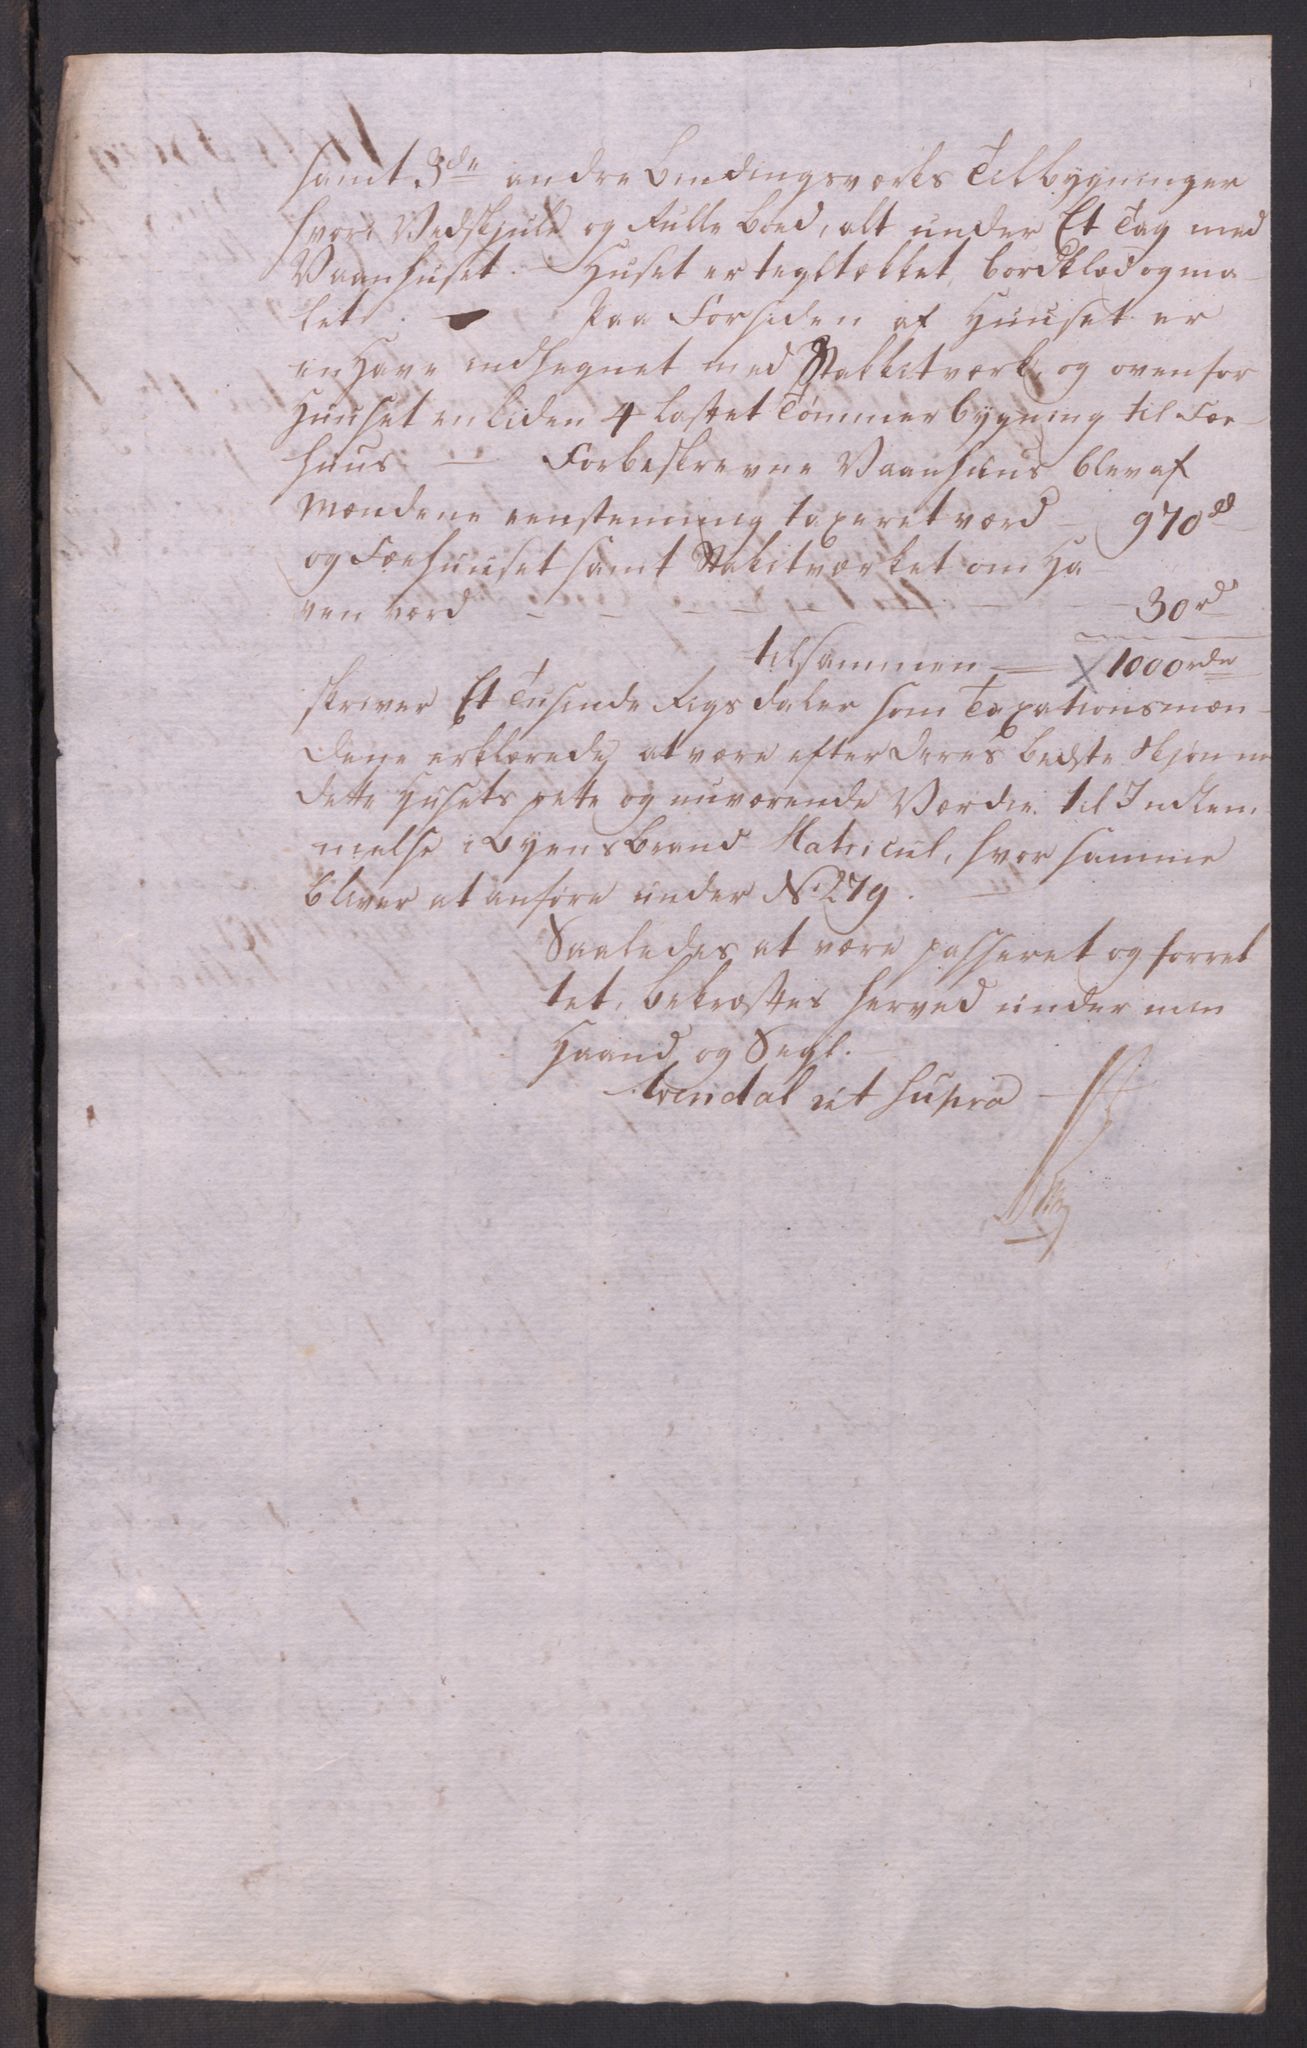 samt 3de andre Bindingsværks Tilbygninger
hvori Vedskjule og Rulle boed, alt under Et Tag med
Vaanhuset. - Huset er tegltekket, bordklæd og ma-
let. - Paa Forsiden af Huuset er
en Have indhegnet med Stakkitværk, og ovenfor
Huuset en liden 4 laftet Tømmerbygning til Fæe-
huus - Forbeskrevne Vaanhuus blev af
Mændene eenstemmig taxeret værd - 970 rd
og Fæehuuset samt Stakitværket om Ha
ven værd - - - - - - - 30 rd
tilsammen - 1000 rdr
skriver Et Tusinde Rigsdaler som Taxationsmæn-
dene erklærede at være efter deres bedste Skjønne
dette Husets rette og nuværende Værdie til Indlem
melse i Byens Brand Matricul, hvor samme
bliver at anføre under No 279.
Saaledes at være passeret og forret
tet, bekræftes herved under min
Haand og Segl.
Arendal ut supra